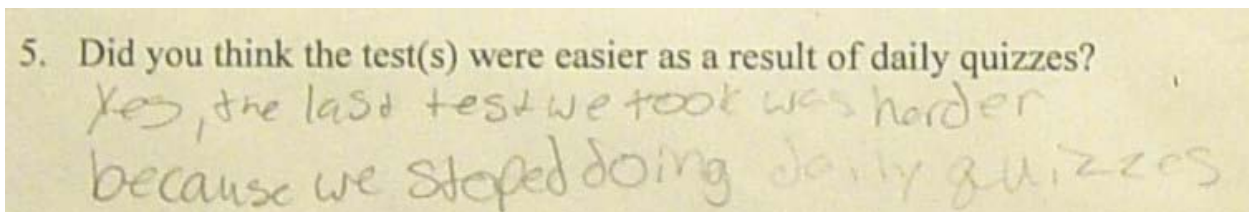 5. Did you think the test(s) were easier as a result of daily quizzes?
Yes, the last test we took was harder
because we stoped doing daily quizzes